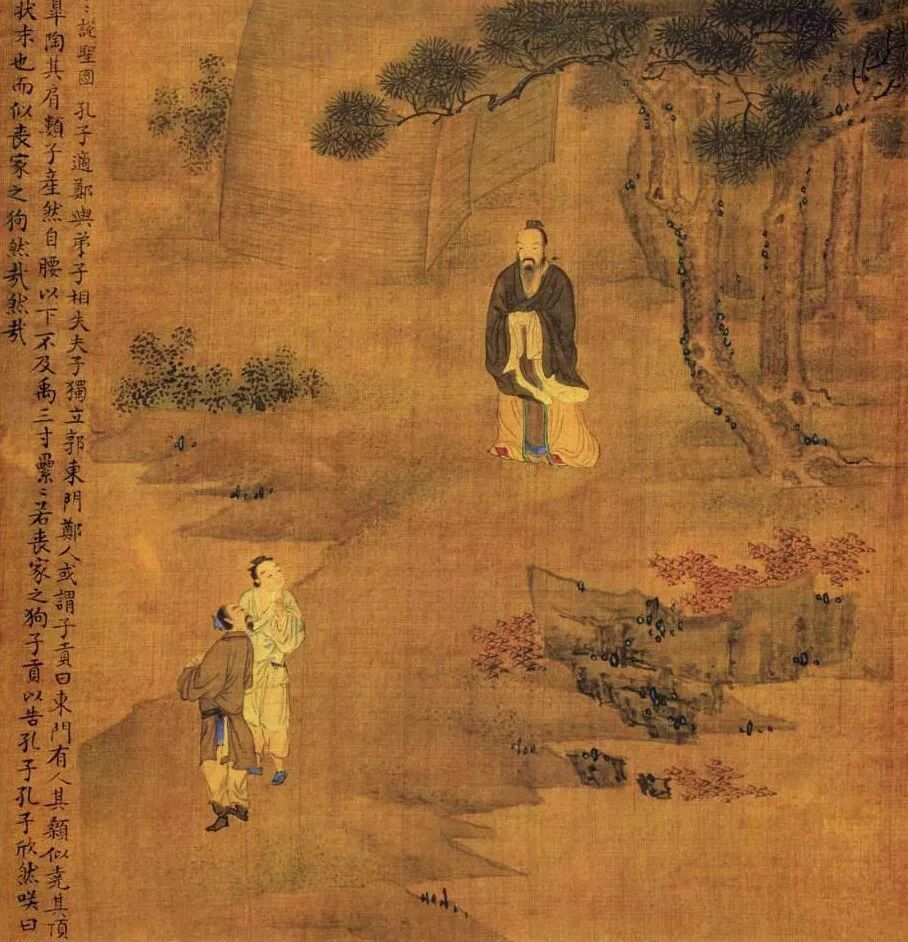 〻說聖圖 孔子適鄭與弟子相失夫子獨立郭東門鄭人或謂子貢曰東門有人其顙似堯其頂
皋陶其肩類子產然自腰以下不及禹三寸纍〻若喪家之狗子貢以告孔子孔子欣然咲曰
狀末也而似喪家之狗然哉然哉